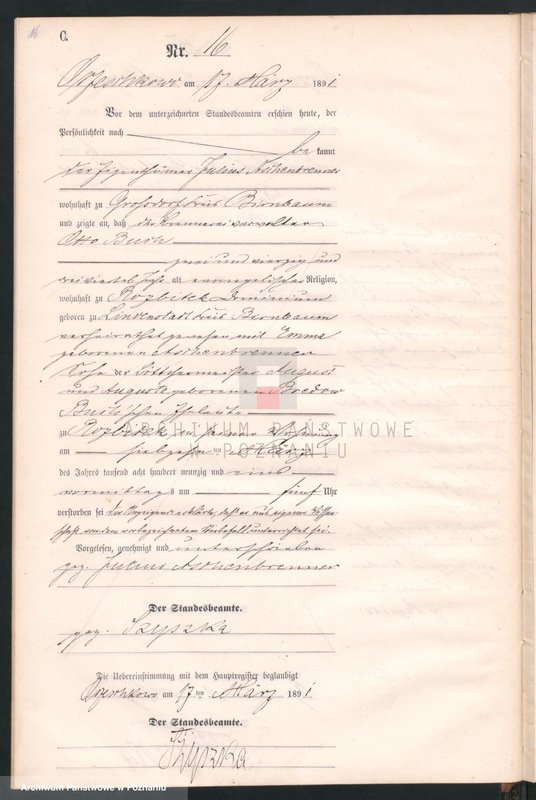 16
C.
Nr. 16
Orzeschkowo am 17. März 1891
Vor dem unterzeichneten Standesbeamten erschien heute, der
Persönlichkeit nach
be kannt
der Eigenthümer Julius Aschenbrenner
wohnhaft zu Großdorf Kreis Birnbaum
und zeigte an, daß der Brennereiverwalter
Otto Busch
zwei und vierzig und
dreiviertel Jahr alt, evangelischer Religion,
wohnhaft zu Rozbitek Dominium
geboren zu Lindenstadt Kreis Birnbaum
verheirathet gewesen mit Emma
geborenen Aschenbrenner
Sohn der Böttchermeister August
und Auguste geborenen Bredow
Busch'schen Eheleute
zu Rozbitek in seiner Wohnung
am siebzehnten März
des Jahres tausend acht hundert neunzig und eins
vormittags um fünf Uhr
verstorben sei der Anzeigende erklärte, daß er aus eigener Wissen-
schaft von dem vorbezeichneten Sterbefall unterrichtet sei.
Vorgelesen, genehmigt und unterschrieben
gez. Julius Aschenbrenner
Der Standesbeamte.
gez. Szyszka
Die Uebereinstimmung mit dem Hauptregister beglaubigt
Orzeschkowo am 17 ten März 1891
Der Standesbeamte.
Szyszka
ARCHIWUM PAŃSTWOWE
W POZNANIU
Archiwum Państwowe w Poznaniu